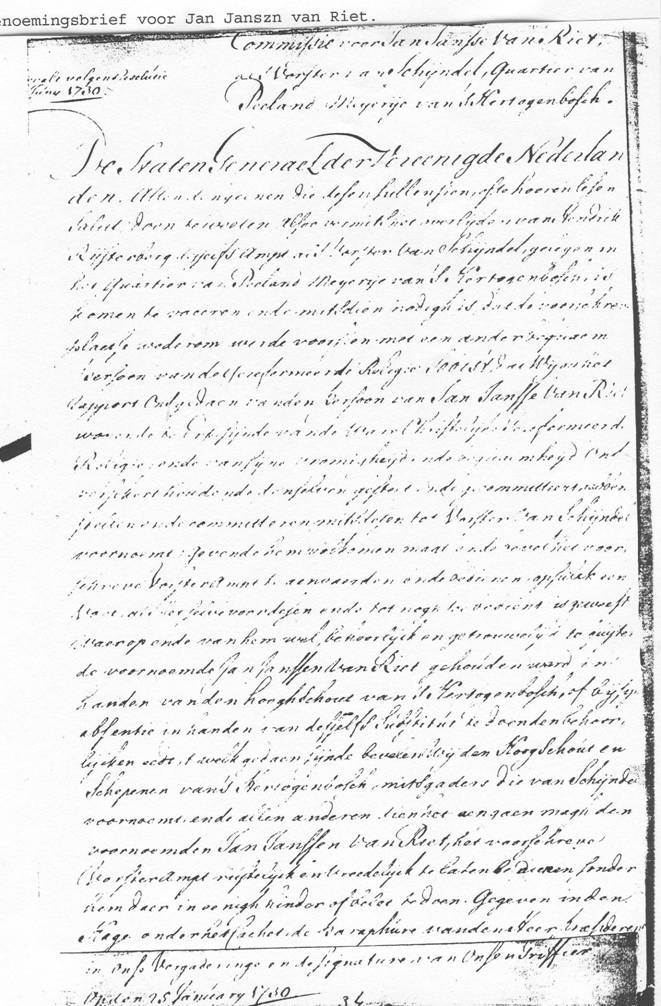 enoemingsbrief voor Jan Janszn van Riet.
Commissie voor Jan Jansse Van Riet,
als Vorster van Schijndel, Quartier van
volgens Resolutie
1730
Peeland Meyerije van 's Hertogenbosch.
De Staten Generael der Vereenigde Nederlan
den. Allen den geenen die desen sullen sien, ofte hooren lesen
Salut doen te weten alsoo vermits het overlijden van Hendrik
Ampt als Vorster van Schijndel, gelegen in
het Quartier van Peeland Meyerije van 's Hertogenbosch, is
komen te vaceren ende mitsdien nodigh is, dat de voorschreve
plaetse wederom werde voorsien met een ander bequaem
Persoon van de Gereformeerde Religie SOO IST dat Wij op het
Rapport Ons gedaen van den Persoon van Jan Jansse Van Riet
wesende van de Ware Christelijke Gereformeerde
Religie, ende van sijne vromigheyd ende bequaemheyd Ons
versekert houdende denselven gestelt ende gecommitteert hebben
stellen ende committeren mits desen tot Vorster van Schijndel
voornoemt, gevende hem volkomen magt ende bevel het voor
schreve Vorster Ampt te aenvaerden ende bedienen, op sulk een
voet, als deselve voor desen ende tot nogh toe bedient is geweest
Waerop ende van hem wel, behoorlijck en getrouwelijk te quyten
de voornoemde Jan Janssen Van Riet gehouden werd in
handen van den Hooghschout van 's Hertogenbosch, of bij sijn
absentie in handen van desselfs Substitut te doen den behoor
lijcken eedt, 't welk gedaen sijnde bevelen Wij den Hoog Schout en
Schepenen van 's Hertogenbosch, mitsgaders die van Schijndel
voornoemt, ende allen anderen dien het aengaen magh den
voornoemden Jan Janssen Van Riet, het voorschreve
Vorster Ampt rustelijck en vredelijck te laten bedienen, sonder
hem daer in eenigh hinder of belet te doen. Gegeven in den
Hage onder het Cachet, de Paraphure van den Heer Presiderende
in Onse Vergaderinge en de signature van Onsen Griffier
Op den 25 January 1730
34